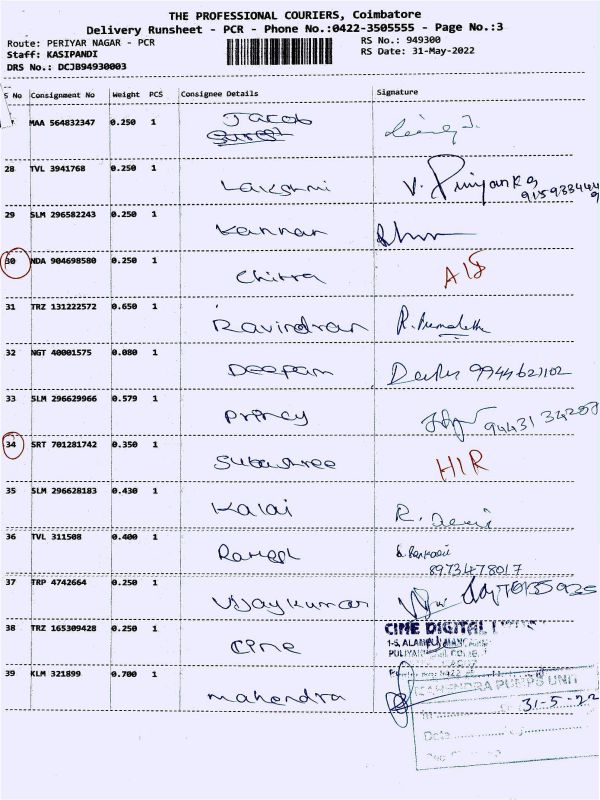 THE PROFESSIONAL COURIERS, Coimbatore
Delivery Runsheet - PCR - Phone No.:0422-3505555 - Page No.:3
Route: PERIYAR NAGAR - PCR
RS No.: 949300
Staff: KASIPANDI
RS Date: 31-May-2022
DRS No.: DCJB94930003
S No Consignment No Weight PCS Consignee Details Signature
MAA 564832347 0.250 1 Jacob
28 TVL 3941768 0.250 1 Lakshmi V. Priyanka
29 SLM 296582243 0.250 1 Kannan
30 NDA 904698580 0.250 1 Chitra
31 TRZ 131222572 0.650 1 Ravindran R. Premalatha
32 NGT 40001575 0.080 1 Deepam 9944621102
33 SLM 296629966 0.579 1 Princy
34 SRT 701281742 0.350 1 Subashree
35 SLM 296628183 0.430 1 Kalai R. Devi
36 TVL 311508 0.400 1 Ramesh
8973478017
37 TRP 4742664 0.250 1 Vijaykumar
38 TRZ 165309428 0.250 1 Cine
CINE DIGITAL
39 KLM 321899 0.700 1 Mahendra
MAHENDRA PUMPS UNIT
31-5-22
Date